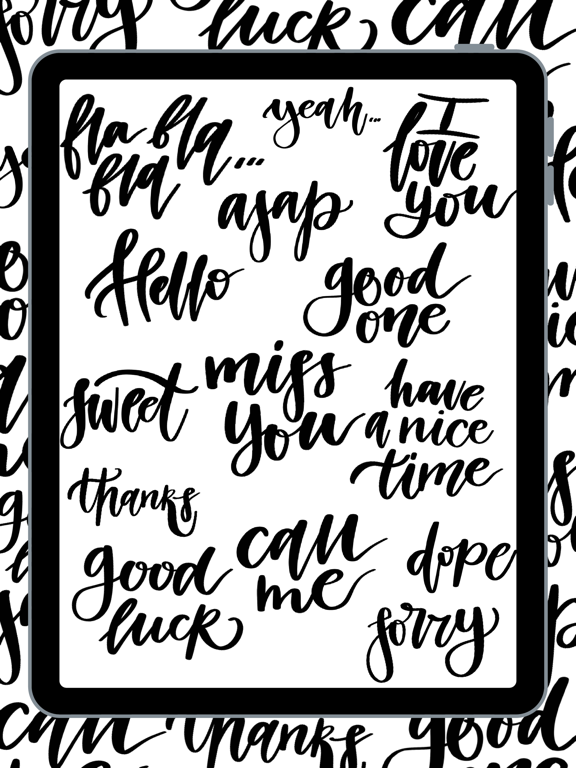 sorry
luck
call
bla bla
bla...
yeah...
I
love
you
asap
Hello
good
one
sweet
miss
you
have
a nice
time
thanks
call
me
good
luck
dope
sorry
call
thanks
good